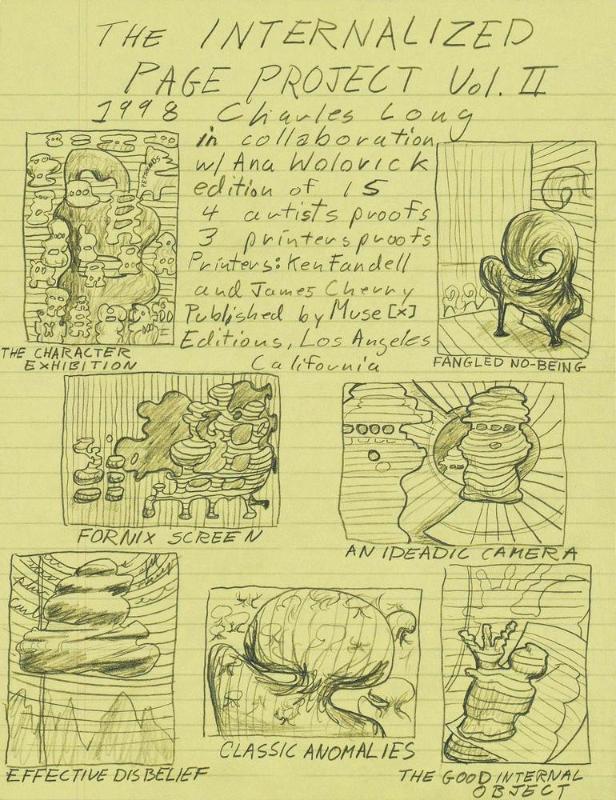 THE INTERNALIZED
PAGE PROJECT Vol. II
1998 Charles Long
in collaboration
w/ Ana Wolovick
edition of 15
4 artists proofs
3 printers proofs
Printers: Ken Fandell
and James Cherry
Published by Muse [x]
Editions, Los Angeles
California
THE CHARACTER
EXHIBITION
FANGLED NO-BEING
FORNIX SCREEN
AN IDEADIC CAMERA
EFFECTIVE DISBELIEF
CLASSIC ANOMALIES
THE GOOD INTERNAL
OBJECT